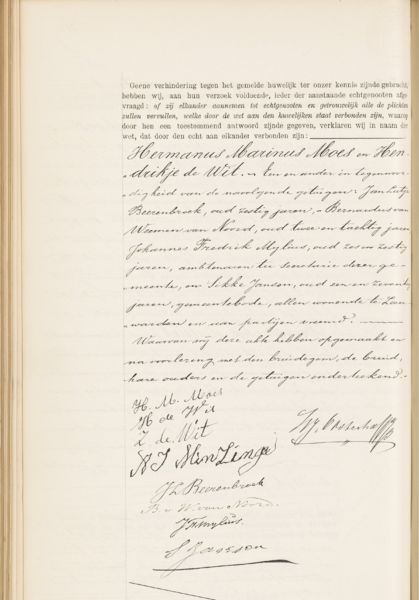 Geene verhindering tegen het gemelde huwelijk ter onzer kennis zijnde gebracht,
hebben wij, aan hun verzoek voldoende, ieder der aanstaande echtgenooten afge-
vraagd: of zij elkander aannemen tot echtgenooten en getrouwelijk alle de plichten
zullen vervullen, welke door de wet aan den huwelijken staat verbonden zijn, waarop
door hen een toestemmend antwoord zijnde gegeven, verklaren wij in naam der
wet, dat door den echt aan elkander verbonden zijn:
Hermanus Marinus Moes en Hen-
drikje de Wit. Een en ander in tegenwoor-
digheid van de navolgende getuigen: Jan
Beerenbroek, oud zestig jaren, Bernardus van
Weemen van Noord, oud twee en tachtig jaren
Johannes Fredrik Mylius, oud zes en zestig
jaren, ambtenaren ter secretarie dezer ge-
meente, en Sikke Janson, oud een en zeventig
jaren, gemeentebode, allen wonende te Leeu-
warden en aan partijen vreemd.
Waarvan wij deze akte hebben opgemaakt en
na voorlezing, met den bruidegom, de bruid,
hare ouders en de getuigen onderteekend.
H. M. Moes
H de Wit
Z. de Wit
Oosterhoff
J Beerenbroek
B. v. W. van Noord.
JFMylius.
S Janson